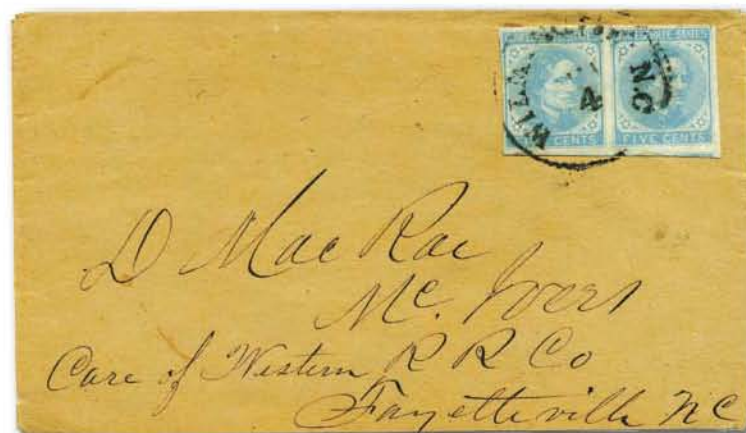 WILM N.C
4
CENTS FIVE CENTS
D MacRae
Mc. Ivers
Care of Western R R Co
Fayetteville NC